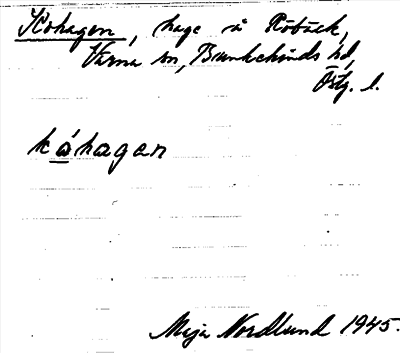 Kohagen, hage å Röbäck,
Värna sn, Bankekinds hd,
Östg. l.
kåhagan
Maja Nordlund 1945.